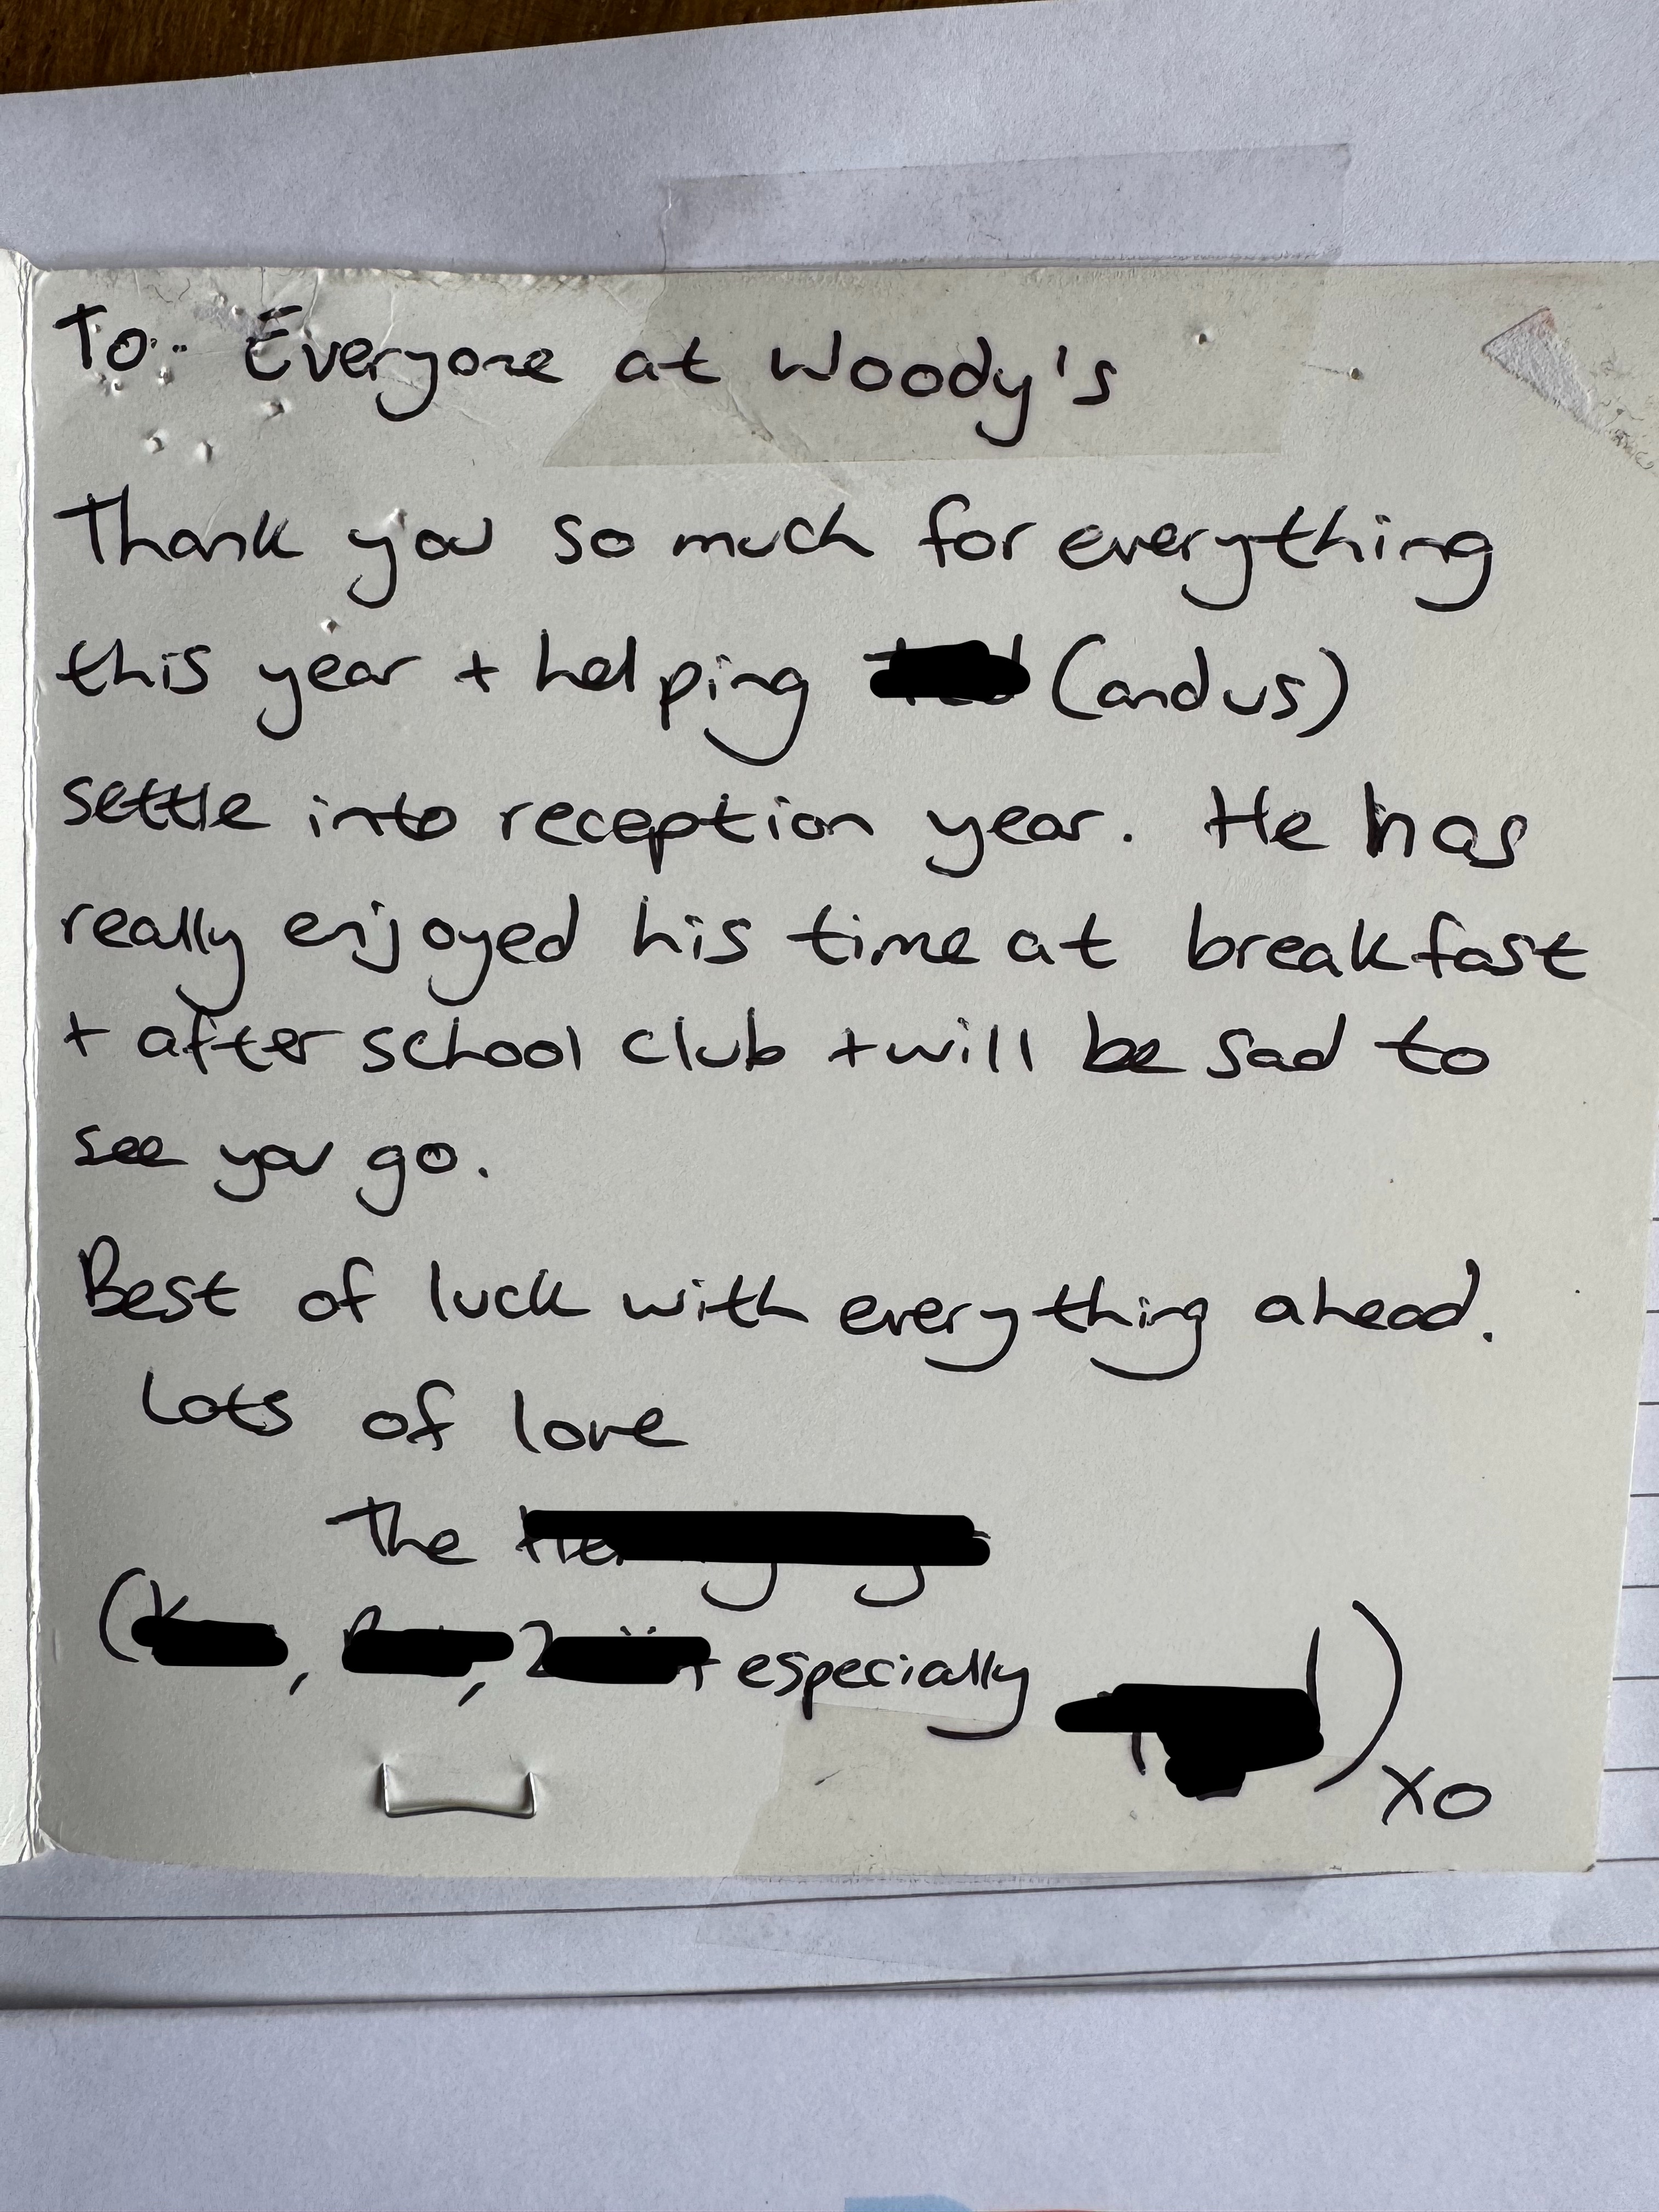 To:- Everyone at Woody's
Thank you so much for everything
this year + helping (and us)
settle into reception year. He has
really enjoyed his time at breakfast
+ after school club + will be sad to
see you go.
Best of luck with everything ahead.
Lots of love
The
( , , + especially ) xo